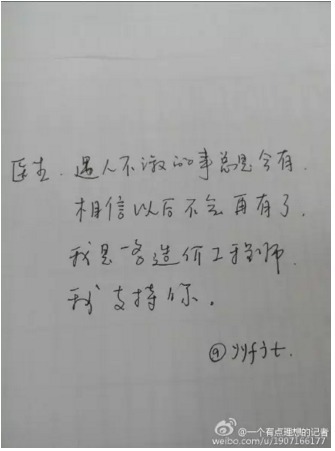 医生.遇人不淑的事总是会有.
相信以后不会再有了.
我是一名造价工程师.
我支持你。
@yyfjt.
@一个有点理想的记者
weibo.com/u/1907166177